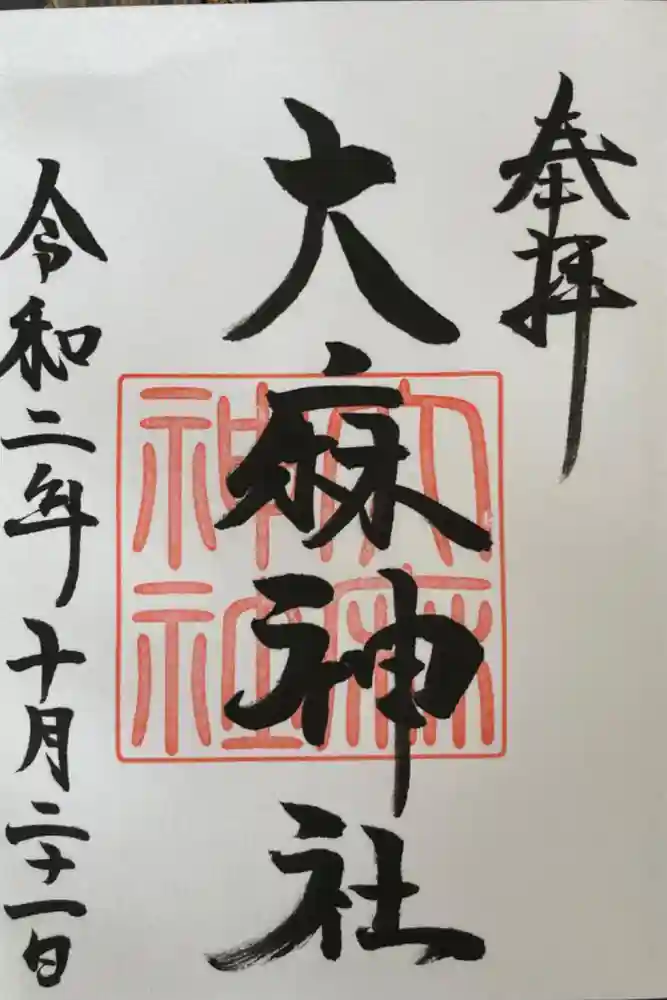 奉拝
大麻神社
大麻神社
令和二年十月二十一日